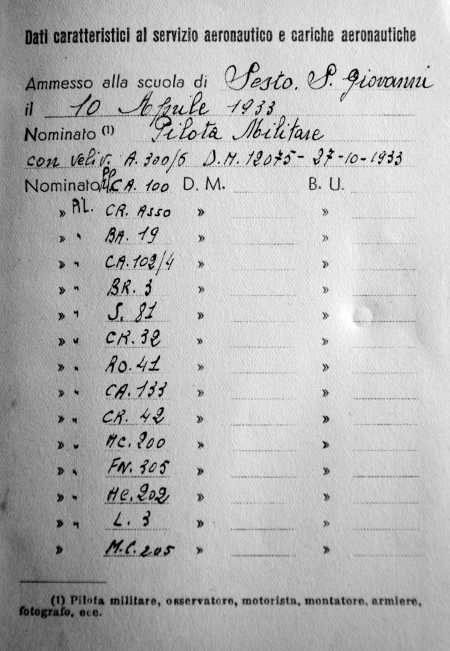 Dati caratteristici al servizio aeronautico e cariche aeronautiche
Ammesso alla scuola di Sesto. S. Giovanni
il 10 Aprile 1933
Nominato (1) Pilota Militare
con veliv. A.300/6 D.M. 12075 - 27-10-1933
Nominato CA. 100 D. M. B. U.
» AL. CR. Asso » »
» " BA. 19 » »
» " CA. 102/4 » »
» " BR. 3 » »
» " S. 81 » »
» " CR. 32 » »
» " RO. 41 » »
» " CA. 133 » »
» " CR. 42 » »
» " MC. 200 » »
» " FN. 305 » »
» " MC. 202 » »
» " L. 3 » »
» M.C. 205 » »
(1) Pilota militare, osservatore, motorista, montatore, armiere,
fotografo, ecc.